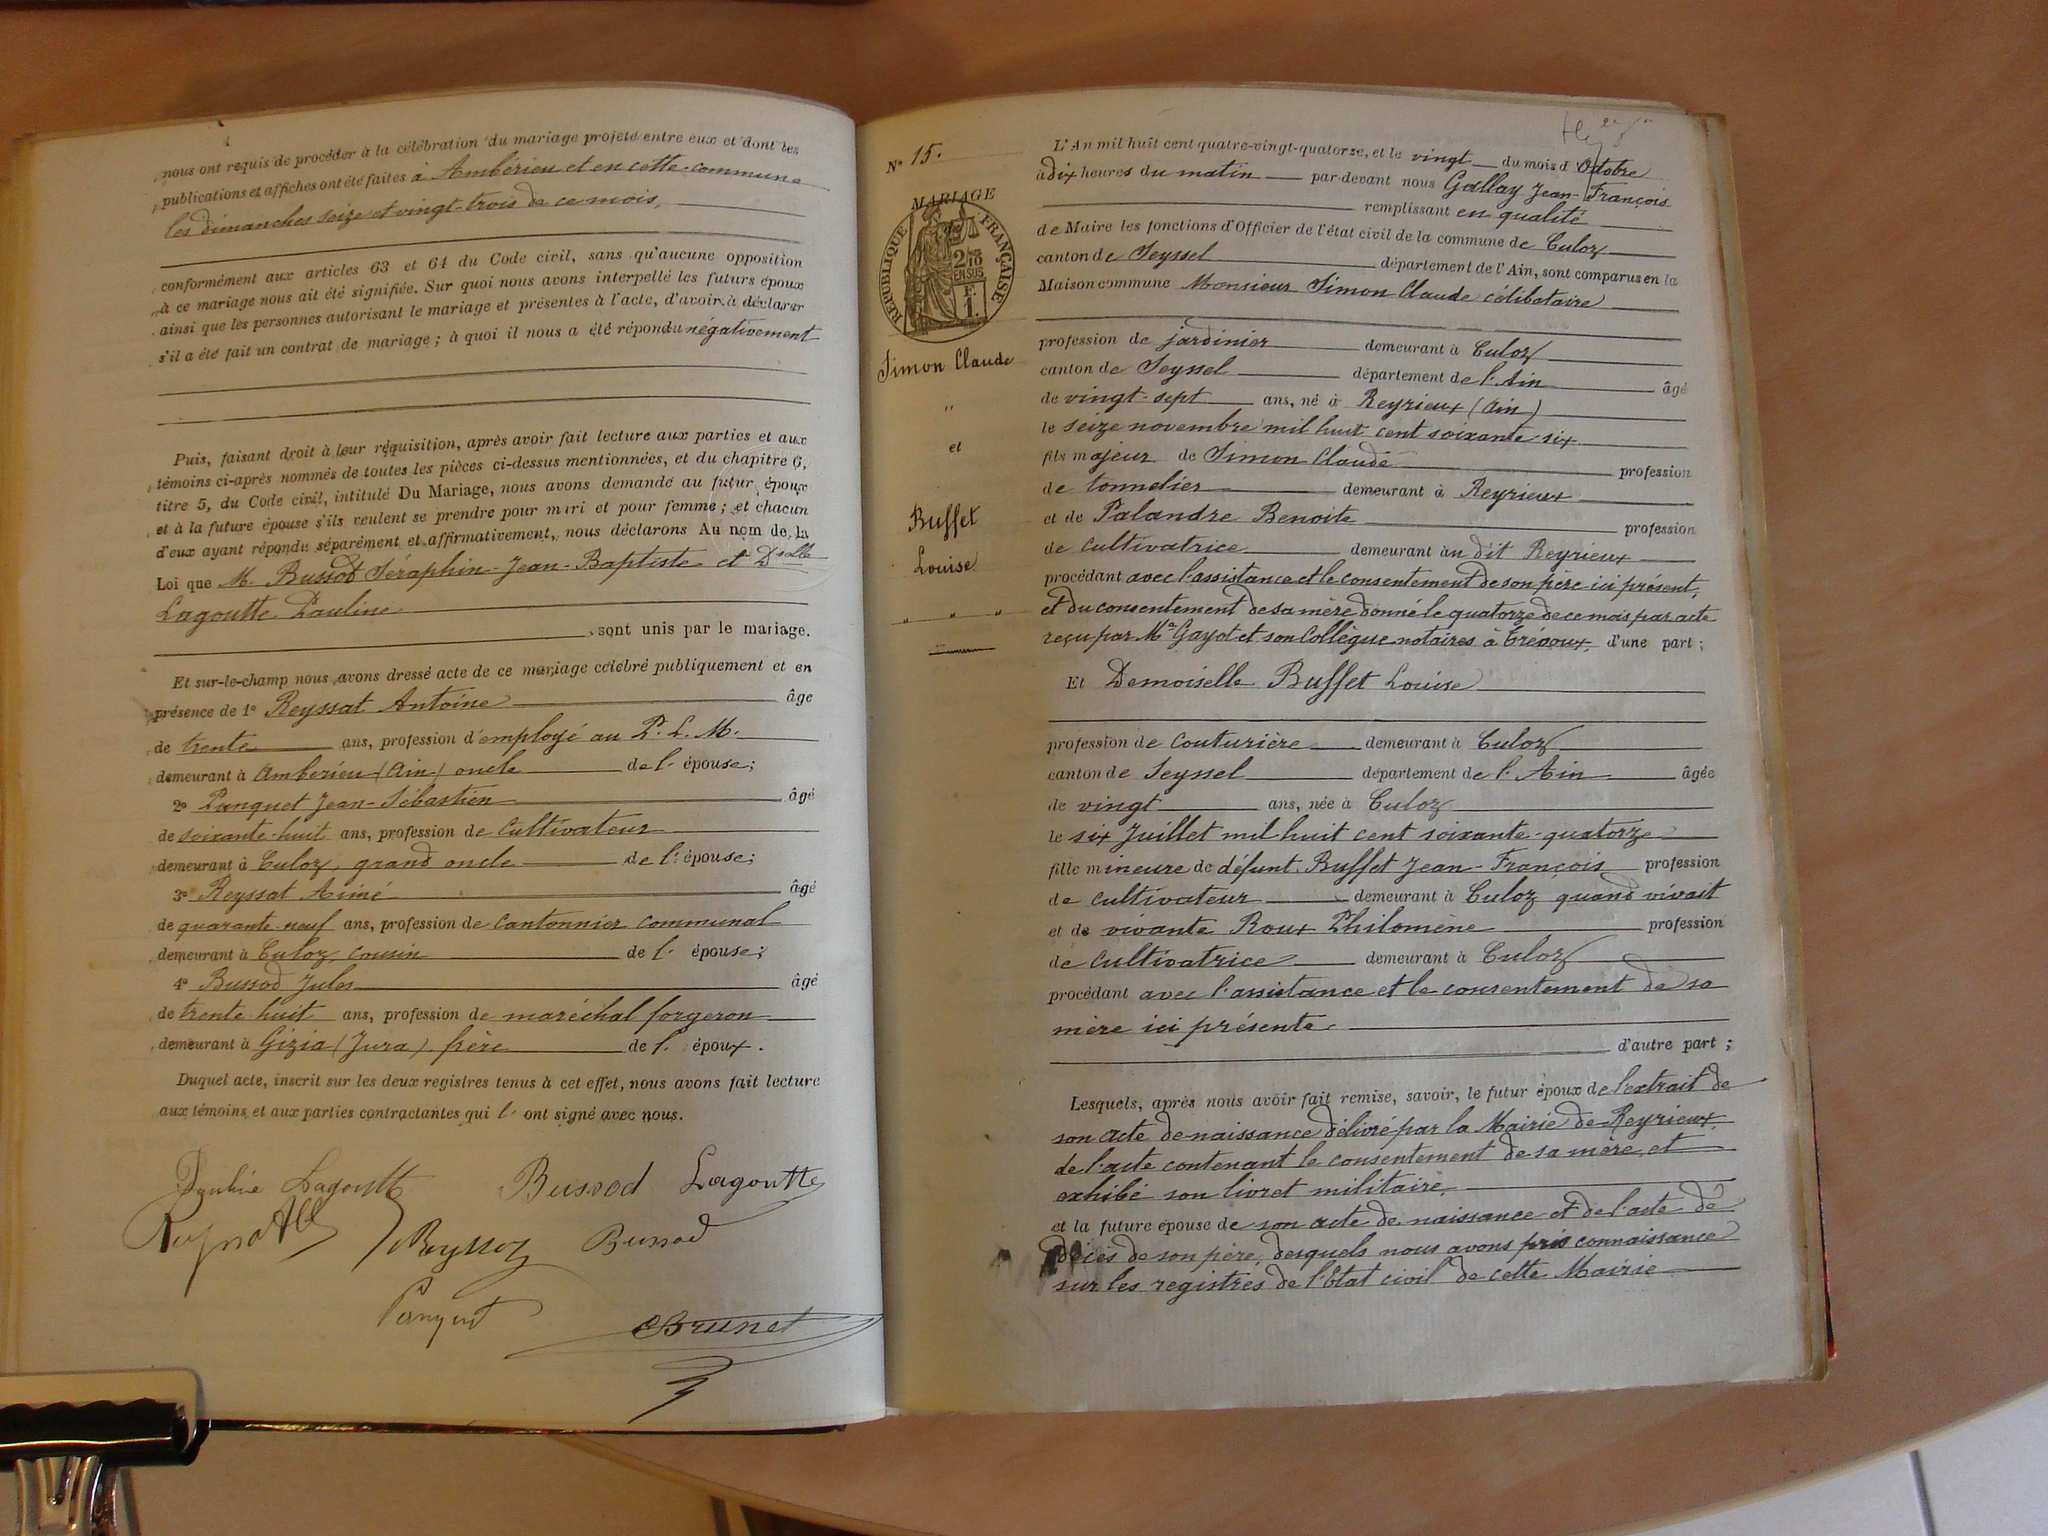 nous ont requis de procéder à la célébration du mariage projeté entre eux et dont les
publications et affiches ont été faites à Ambérieu et en cette commune
les dimanches seize et vingt-trois de ce mois,
conformément aux articles 63 et 64 du Code civil, sans qu'aucune opposition
à ce mariage nous ait été signifiée. Sur quoi nous avons interpellé les futurs époux
ainsi que les personnes autorisant le mariage et présentes à l'acte, d'avoir à déclarer
s'il a été fait un contrat de mariage; à quoi il nous a été répondu négativement
Puis, faisant droit à leur réquisition, après avoir fait lecture aux parties et aux
témoins ci-après nommés de toutes les pièces ci-dessus mentionnées, et du chapitre 6,
titre 5, du Code civil, intitulé Du Mariage, nous avons demandé au futur époux
et à la future épouse s'ils veulent se prendre pour mari et pour femme; et chacun
d'eux ayant répondu séparément et affirmativement, nous déclarons Au nom de la
Loi que M. Bussod Séraphin-Jean-Baptiste et Dselle
Lagoutte Pauline
sont unis par le mariage.
Et sur-le-champ nous avons dressé acte de ce mariage célébré publiquement et en
présence de 1° Reyssat Antoine âgé
de trente ans, profession d'employé au P. L. M.
demeurant à Amberieu (Ain) oncle de l' épouse;
2° Panquet Jean-Sébastien âgé
de soixante-huit ans, profession de Cultivateur
demeurant à Culoz, grand oncle de l' épouse;
3° Reyssat Aimé âgé
de quarante-neuf ans, profession de Cantonnier communal
demeurant à Culoz, cousin de l' épouse;
4° Bussod Jules âgé
de trente huit ans, profession de maréchal forgeron
demeurant à Gizia (Jura) frère de l' époux.
Duquel acte, inscrit sur les deux registres tenus à cet effet, nous avons fait lecture
aux témoins et aux parties contractantes qui l' ont signé avec nous.
Pauline Lagoutte Bussod Lagoutte
Bussod
Panquet
Brunet
N° 15.
MARIAGE
RÉPUBLIQUE FRANÇAISE
2/10
EN SUS
F.
1.
Simon Claude
"
et
Buffet
Louise
" " "
L'An mil huit cent quatre-vingt-quatorze, et le vingt du mois d'Octobre
à dix heures du matin par-devant nous Gallay Jean-François
remplissant en qualité
de Maire les fonctions d'Officier de l'état civil de la commune de Culoz
canton de Seyssel département de l'Ain, sont comparus en la
Maison commune Monsieur Simon Claude célibataire
profession de jardinier demeurant à Culoz
canton de Seyssel département de l'Ain âgé
de vingt-sept ans, né à Reyrieux (Ain)
le seize novembre mil huit cent soixante-six
fils majeur de Simon Claude profession
de tonnelier demeurant à Reyrieux
et de Palandre Benoite profession
de cultivatrice demeurant au dit Reyrieux
procédant avec l'assistance et le consentement de son père ici présent,
et du consentement de sa mère donné le quatorze de ce mois par acte
reçu par Me Gayot et son Collègue notaires à Trévoux, d'une part;
Et Demoiselle Buffet Louise
profession de couturière demeurant à Culoz
canton de Seyssel département de l'Ain âgée
de vingt ans, née à Culoz
le six Juillet mil huit cent soixante-quatorze
fille mineure de défunt Buffet Jean-François profession
de cultivateur demeurant à Culoz quand vivait
et de vivante Roux Philomène profession
de cultivatrice demeurant à Culoz
procédant avec l'assistance et le consentement de sa
mère ici présente.
d'autre part;
Lesquels, après nous avoir fait remise, savoir, le futur époux de l'extrait de
son acte de naissance délivré par la Mairie de Reyrieux,
de l'acte contenant le consentement de sa mère, et
exhibé son livret militaire,
et la future épouse de son acte de naissance et de l'acte de
décès de son père, desquels nous avons pris connaissance
sur les registres de l'Etat civil de cette Mairie